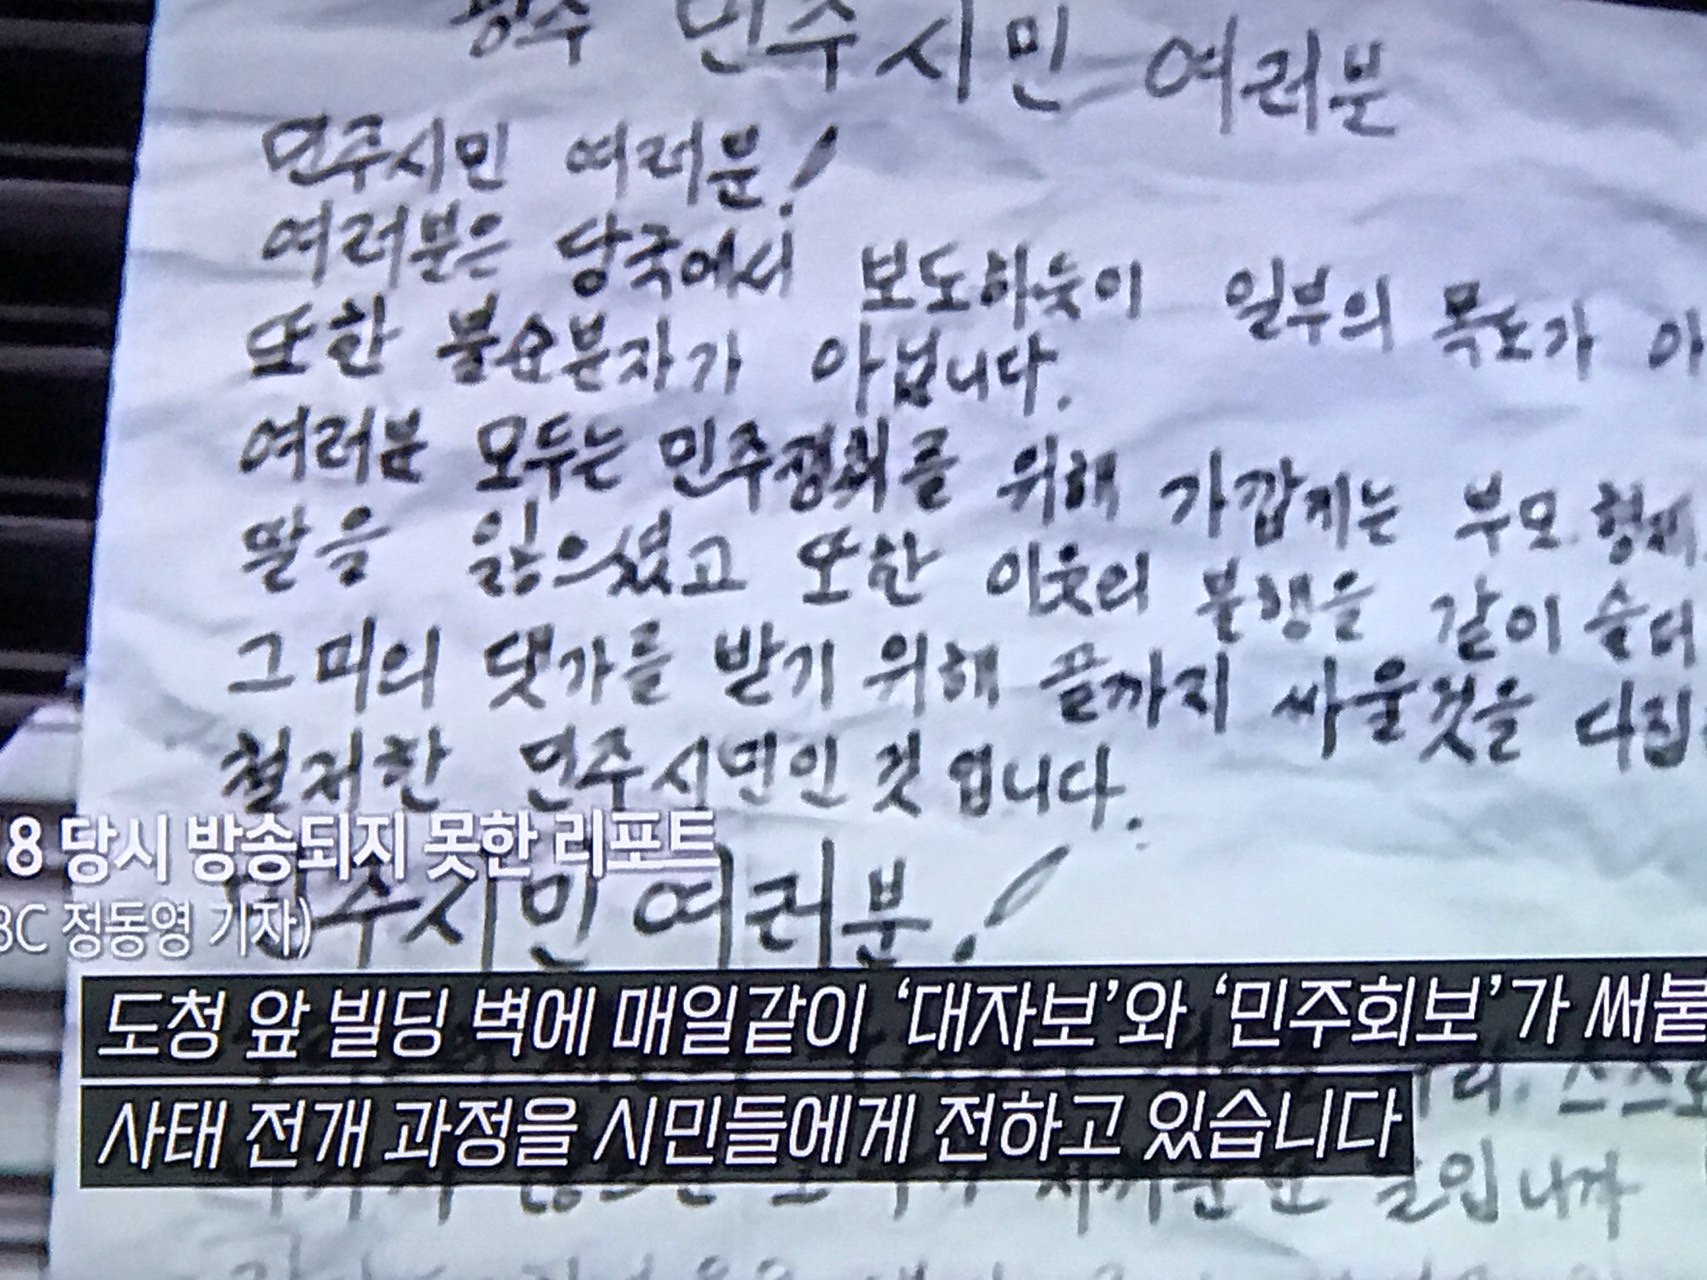 광주 민주 시민 여러분
민주시민 여러분!
여러분은 당국에서 보도하듯이 일부의 폭도가 아
또한 불순분자가 아닙니다.
여러분 모두는 민주쟁취를 위해 가깝게는 부모.형제
딸을 잃으셨고 또한 이웃의 불행을 같이 슬퍼
그 피의 댓가를 받기 위해 끝까지 싸울것을 다짐
철저한 민주시민인 것입니다.
18 당시 방송되지 못한 리포트
민주시민 여러분!
BC 정동영 기자)
도청 앞 빌딩 벽에 매일같이 ‘대자보’와 ‘민주회보’가 써붙
사태 전개 과정을 시민들에게 전하고 있습니다